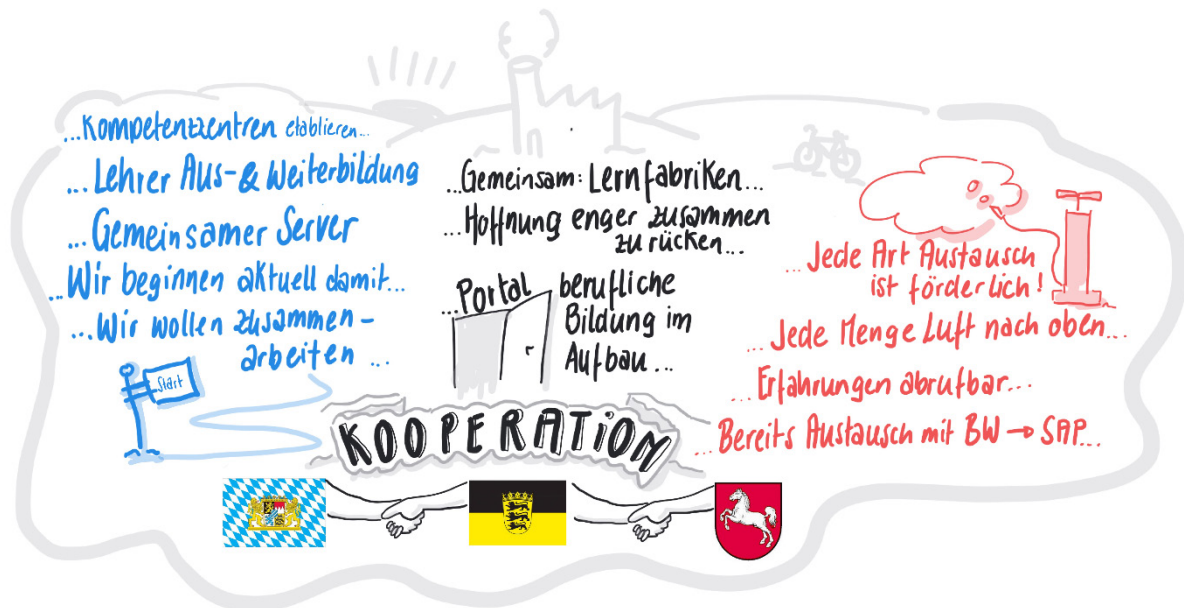 ...Kompetenzzentren etablieren...
...Lehrer Aus-& Weiterbildung
...Gemeinsamer Server
...Wir beginnen aktuell damit...
...Wir wollen zusammen-
arbeiten ...
Start
...Gemeinsam: Lernfabriken...
...Hoffnung enger zusammen
zu rücken...
...Portal berufliche
Bildung im
Aufbau...
...Jede Art Austausch
ist förderlich!
...Jede Menge Luft nach oben...
...Erfahrungen abrufbar...
...Bereits Austausch mit BW → SAP...
KOOPERATION